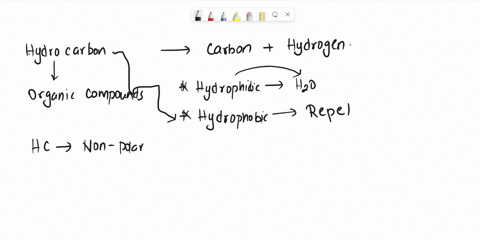 Hydrocarbon → Carbon + Hydrogen.
↓
Organic compounds
* Hydrophilic → H2O
* Hydrophobic → Repel
HC → Non-polar